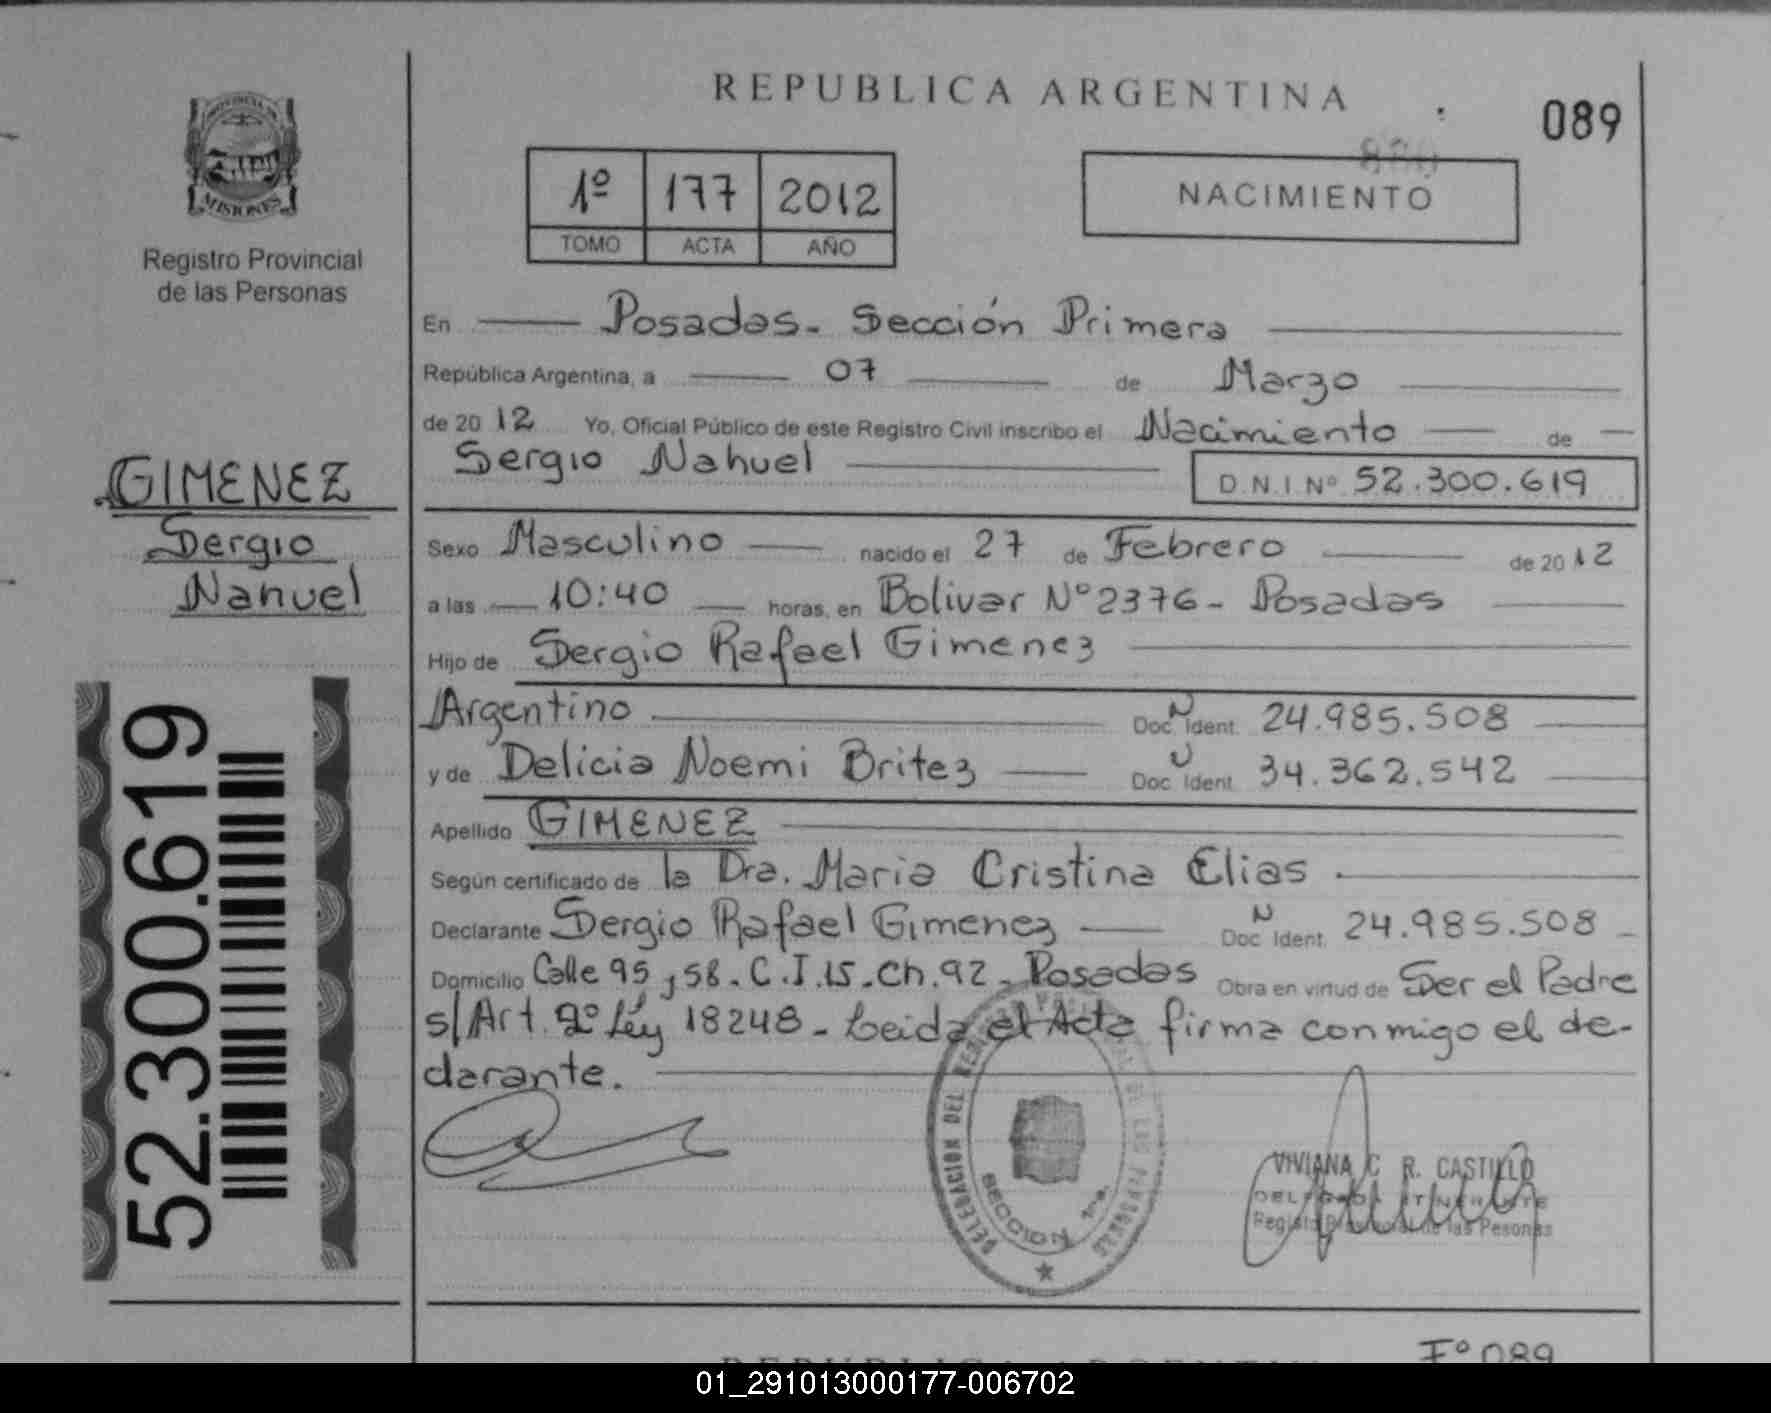 REPUBLICA ARGENTINA
089
PROVINCIA DE
MISIONES
Registro Provincial
de las Personas
1º 177 2012
TOMO ACTA AÑO
NACIMIENTO
En Posadas. Sección Primera
República Argentina, a 07 de Marzo
de 2012 Yo, Oficial Público de este Registro Civil inscribo el Nacimiento de
Sergio Nahuel
D.N.I.Nº 52.300.619
GIMENEZ
Sergio
Nahuel
Sexo Masculino nacido el 27 de Febrero de 2012
a las 10:40 horas, en Bolivar Nº 2376 - Posadas
Hijo de Sergio Rafael Gimenez
Argentino Doc. Ident. 24.985.508
y de Delicia Noemi Britez Doc. Ident. 34.362.542
Apellido GIMENEZ
Según certificado de la Dra. Maria Cristina Elias.
Declarante Sergio Rafael Gimenez Doc. Ident. 24.985.508
Domicilio Calle 95 y 58. C.I.15.Ch.92 - Posadas Obra en virtud de Ser el Padre
s/Art. 2º Ley 18248 - Leida el Acta firma conmigo el de-
clarante.
52.300.619
DELEGACION DEL
DE LAS PERSONAS
SECCION 1ra.
VIVIANA C. R. CASTILLO
Registro Provincial de las Pesonas
REPUBLICA ARGENTINA
Fº 089
01_291013000177-006702